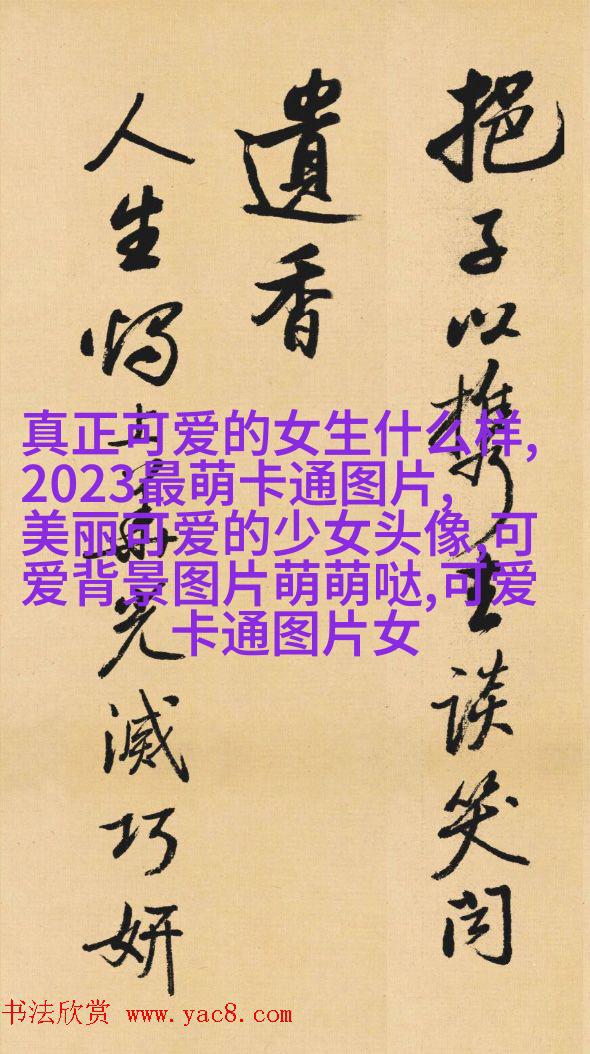 挹子以攜去談笑聞
遺香
人生燭上華光滅巧妍
真正可爱的女生什么样,
2023最萌卡通图片,
美丽可爱的少女头像,可
爱背景图片萌萌哒,可爱
卡通图片女
书法欣赏 www.yac8.com